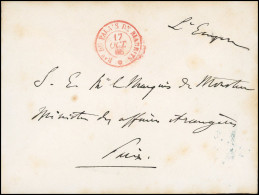 PALAIS DE
17
OCT
66
L'Emp
S. E. M. le Marquis de Moustier
Ministre des affaires étrangères
Paris.